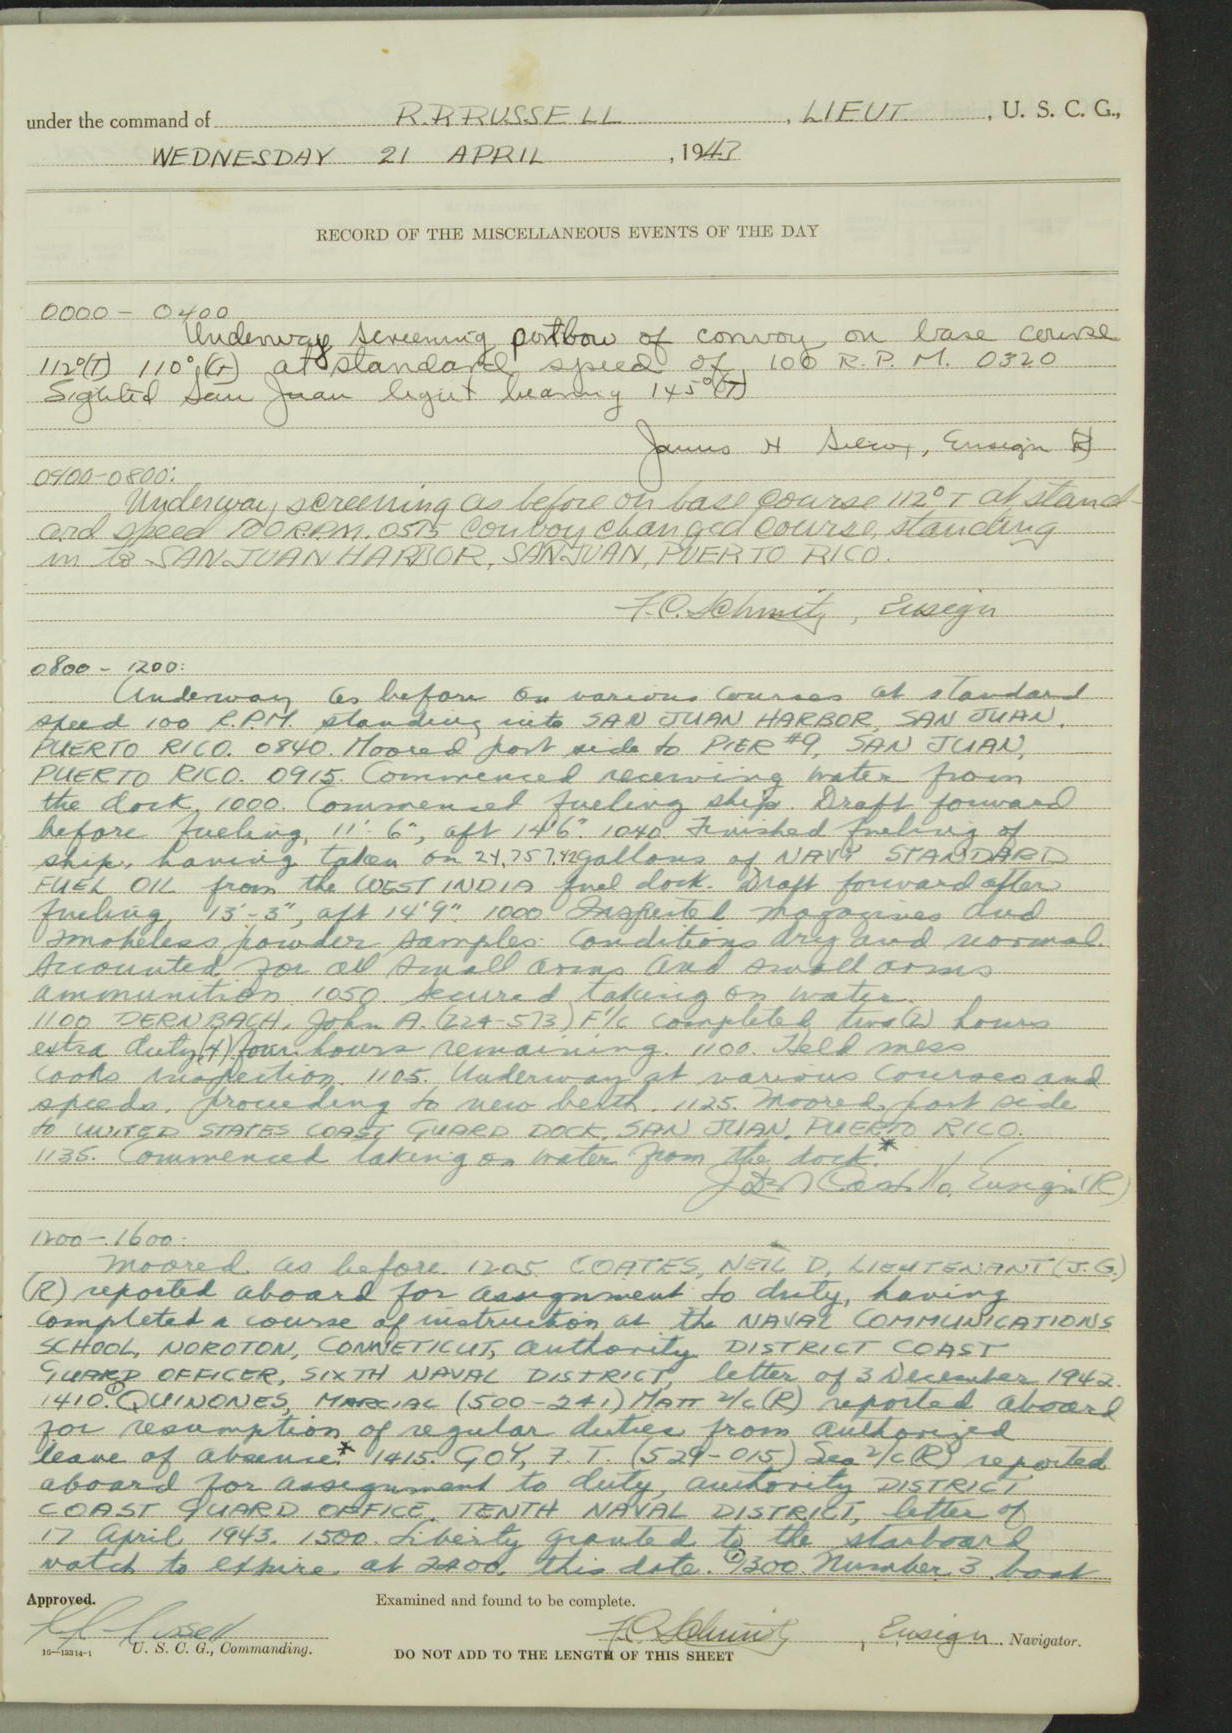 under the command of R.R. RUSSELL , LIEUT. , U. S. C. G.,
WEDNESDAY 21 APRIL , 1943
RECORD OF THE MISCELLANEOUS EVENTS OF THE DAY
0000 - 0400
Underway screening port bow of convoy on base course
112°(T) 110° at standard speed of 100 R.P.M. 0320
Sighted San Juan light bearing 145°(T)
James H , Ensign R
0400-0800:
Underway, screening as before on base course 112° T at stand-
ard speed 100 R.P.M. 0515 Convoy changed course, standing
in to SAN JUAN HARBOR, SAN JUAN, PUERTO RICO.
F.C. Schmitz, Ensign
0800 - 1200:
Underway as before on various courses at standard
speed 100 R.P.M. standing into SAN JUAN HARBOR, SAN JUAN,
PUERTO RICO. 0840. Moored port side to PIER #9, SAN JUAN,
PUERTO RICO. 0915. Commenced receiving water from
the dock. 1000. Commensed fueling ship. Draft forward
before fueling, 11'-6", aft 14'6". 1040. Finished fueling of
ship, having taken on 24,757.42 gallons of NAVY STANDARD
FUEL OIL from the WEST INDIA fuel dock. Draft forward after
fueling, 13'-3", aft 14'9". 1000 Inspected magazines and
smokeless powder samples. Conditions dry and normal.
Accounted for all small arms and small arms
ammunition. 1050. Secured taking on water.
1100 DERNBACH, John A. (224-573) F'/c completed two (2) hours
extra duty, (4) four hours remaining. 1100. Held mess
cooks inspection. 1105. Underway at various courses and
speeds, proceeding to new berth. 1125. Moored port side
to UNITED STATES COAST GUARD DOCK, SAN JUAN, PUERTO RICO.
1135. Commenced taking on water from the dock.*
Castillo, Ensign (R)
1200 - 1600:
Moored as before. 1205 COATES, NEIL D, LIEUTENANT (J.G.)
(R) reported aboard for assignment to duty, having
completed a course of instruction at the NAVAL COMMUNICATIONS
SCHOOL, NOROTON, CONNETICUT, authority DISTRICT COAST
GUARD OFFICER, SIXTH NAVAL DISTRICT, letter of 3 December 1942.
1410.① QUINONES, MARCIAL (500-241) MATT 2/c (R) reported aboard
for resumption of regular duties from authorized
leave of absence.* 1415. GOY, F. T. (529-015) Sea 2/c (R) reported
aboard for assignment to duty, authority DISTRICT
COAST GUARD OFFICE, TENTH NAVAL DISTRICT, letter of
17 April 1943. 1500. Liberty granted to the starboard
watch to expire at 2400, this date. ①1300. Number 3 boat
Approved. Examined and found to be complete.
R R Russell F.C. Schmitz , Ensign , Navigator.
16—13314-1 U. S. C. G., Commanding.
DO NOT ADD TO THE LENGTH OF THIS SHEET